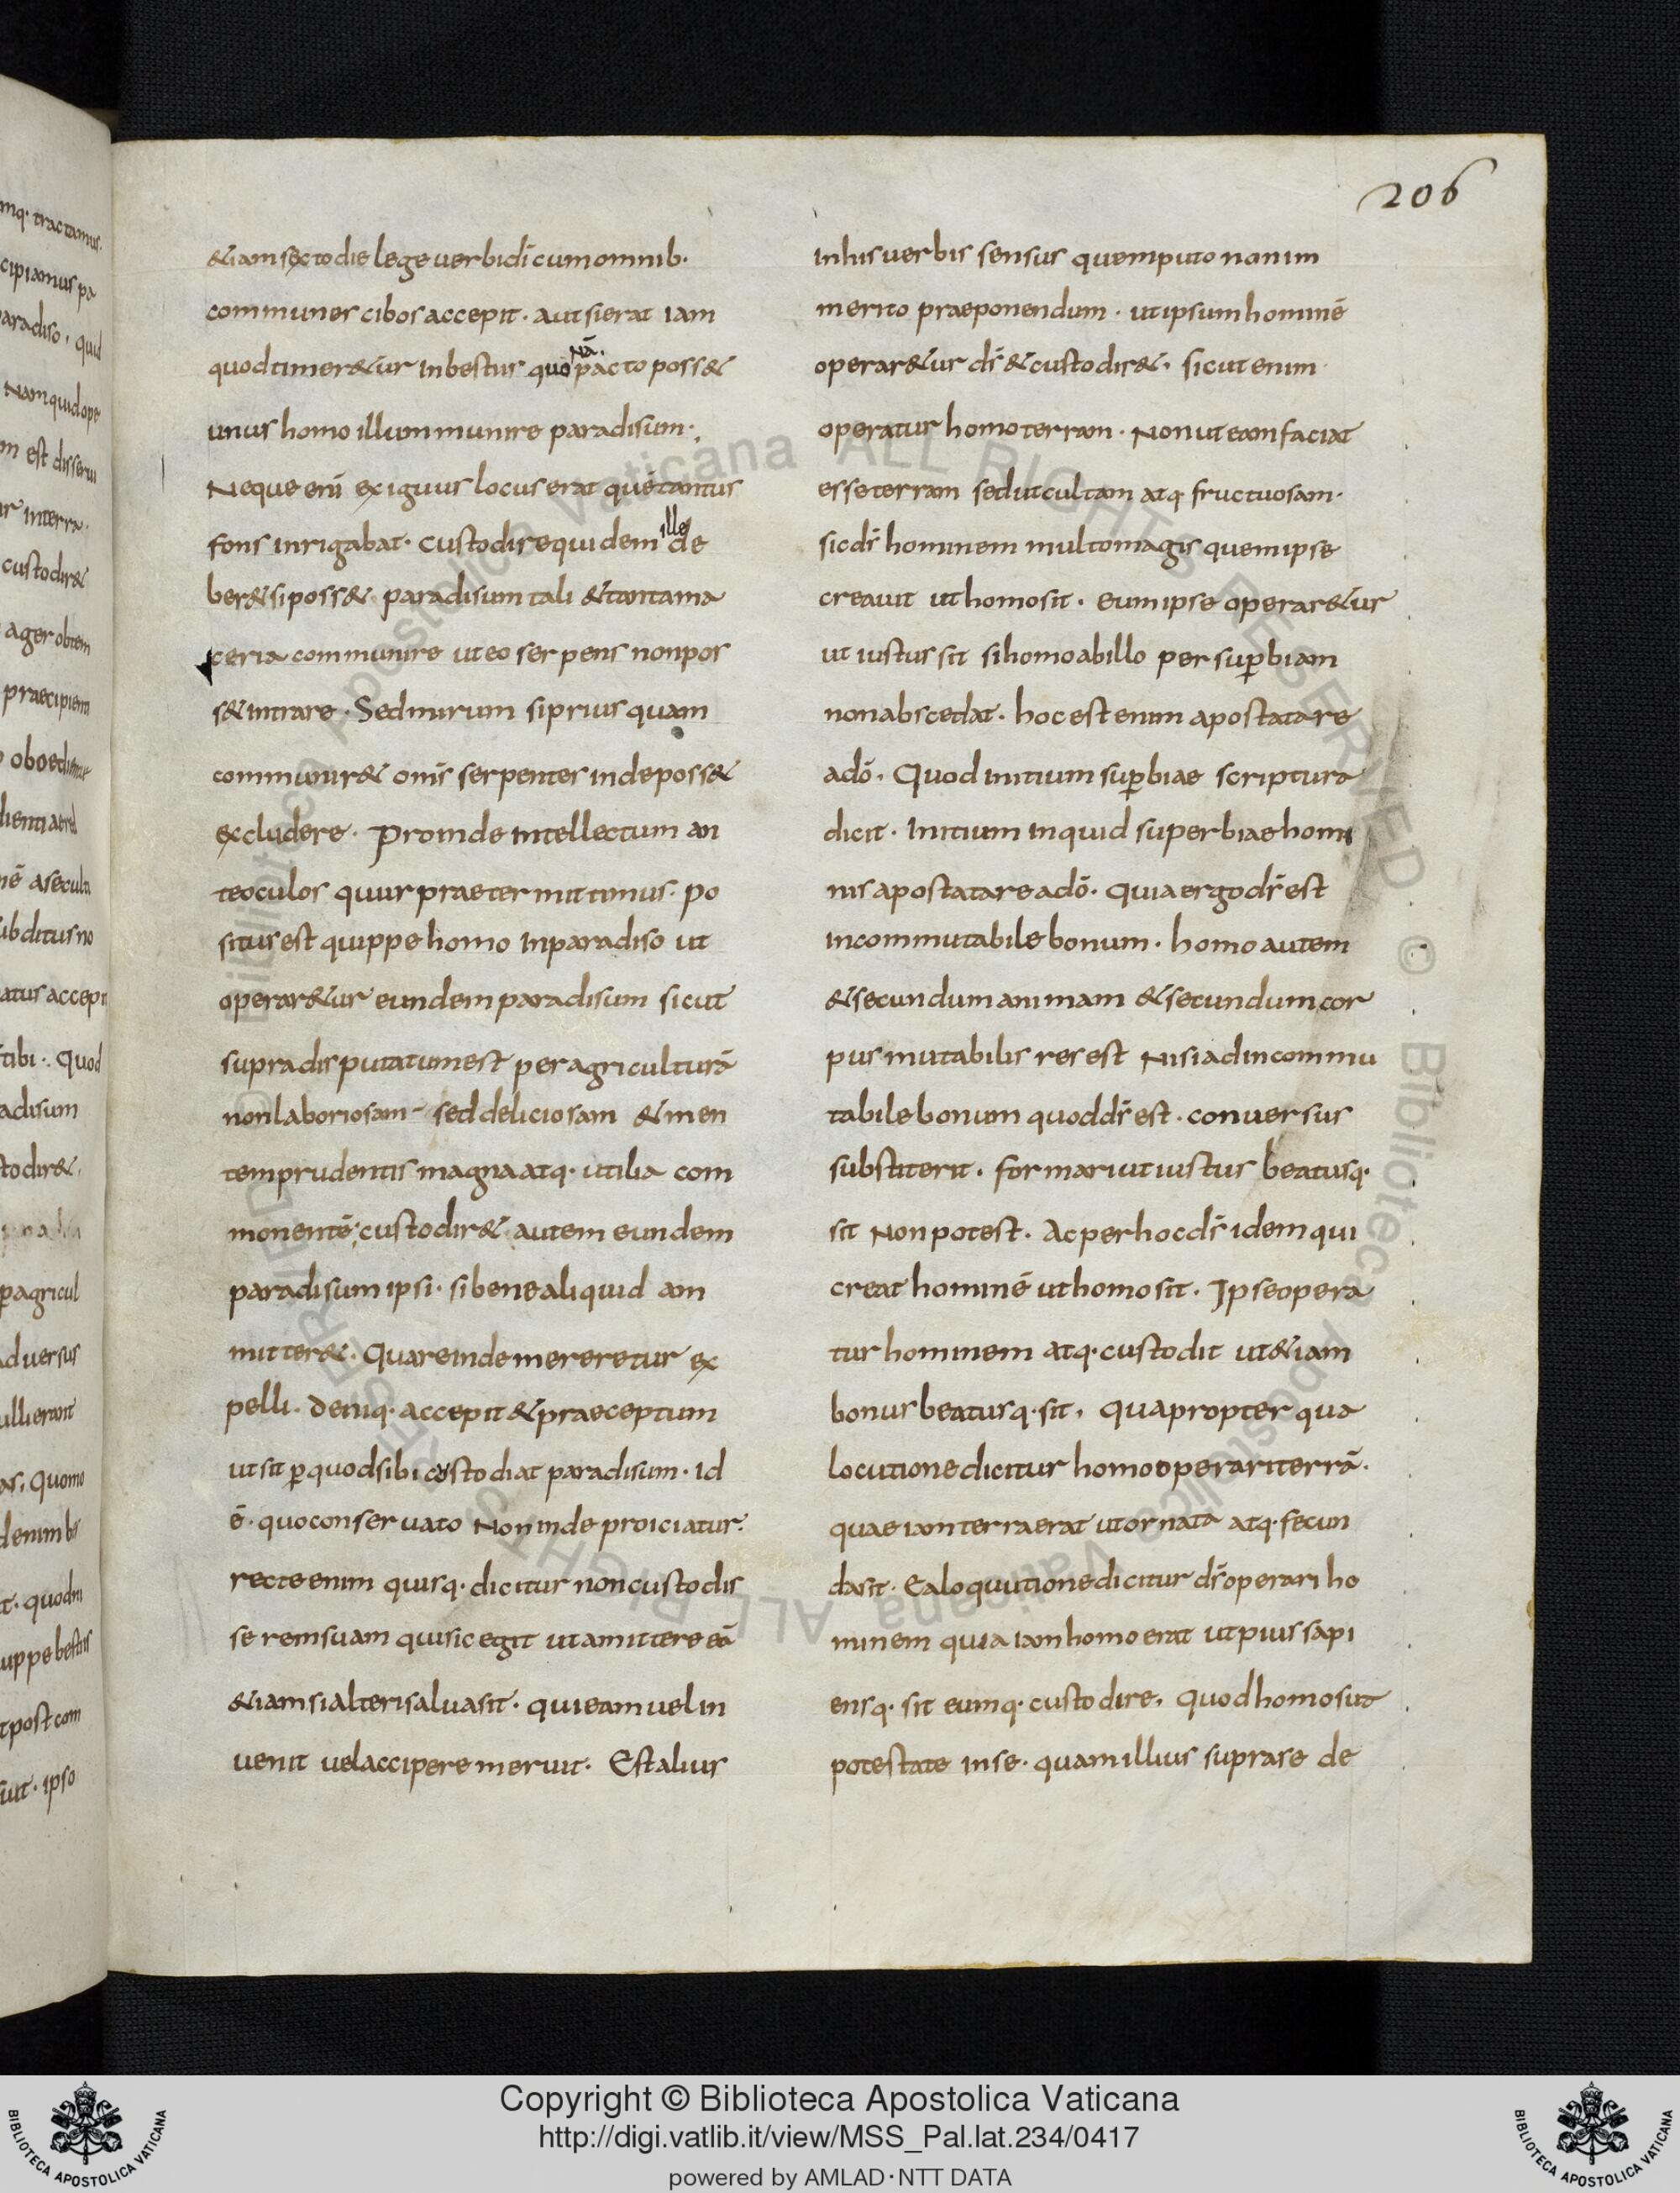 206
&iam sexto die lege uerbi dī cum omnib·
communes cibos accepit· aut si erat iam
quod timer&ur in bestiis quonā· pacto poss&
unus homo illum munire paradisum·,
Neque enī exiguus locus erat quē tantus
fons inrigabat· custodire quidem ille de
ber& si poss& paradisum tali & tanta ma
ceria communire ut eo serpens non pos
s& intrare· Sed mirum si prius quam
communir& omīs serpentes inde poss&
excludere· Proinde intellectum an
te oculos quur praetermittimus· po
situs est quippe homo in paradiso ut
operar&ur eundem paradisum sicut
supra disputatum est per agriculturā
non laboriosam- sed deliciosam & men
tem prudentis magna atq· utilia com
monentē; custodir& autem eundem
paradisum ipsi· sibene aliquid am
mitter&· Quare inde mereretur ex
pelli· deniq· accepit & praeceptum
ut sit p quod sibi custodiat paradisum· id
ē· quo conseruato Non inde proiciatur·
recte enim quisq· dicitur non custodis
se rem suam qui sic egit ut amittere eā
&iam si alteri salua sit· qui eam uel in
uenit uel accipere meruit· Est alius
in his uerbis sensus quem puto non im
merito praeponendum· ut ipsum hominē
operar&ur ds̄ & custodir&· sicut enim
operatur homo terram· Non ut eam faciat
esse terram sed ut cultam atq· fructuosam·
sic ds̄ hominem multo magis quem ipse
creauit ut homo sit· eum ipse operar&ur
ut iustus sit si homo ab illo per supbiam
non abscedat· hoc est enim apostatare
a dō· Quod initium supbiae scriptura
dicit· Initium inquid superbiae homi
nis apostatare a dō· Quia ergo ds̄ est
incommutabile bonum· homo autem
& secundum animam & secundum cor
pus mutabilis res est Nisi ad incommu
tabile bonum quod ds̄ est· conuersus
substiterit· formari ut iustus beatusq·
sit Non potest· Ac per hoc ds̄ idem qui
creat hominē ut homo sit· Ipse opera
tur hominem atq· custodit ut &iam
bonus beatusq· sit· Quapropter qua
locutione dicitur homo operari terrā·
quae iam terra erat ut ornata atq· fecun
da sit· Ea loquutione dicitur ds̄ operari ho
minem quia iam homo erat ut pius sapi
ensq· sit eumq· custodire· quod homo sua
potestate in se· quam illius supra se de
Copyright © Biblioteca Apostolica Vaticana
http://digi.vatlib.it/view/MSS_Pal.lat.234/0417
powered by AMLAD·NTT DATA